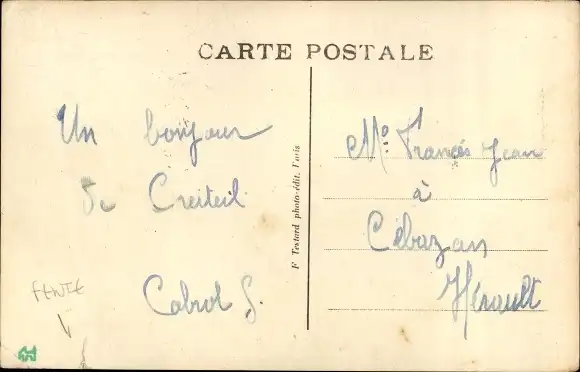 CARTE POSTALE
Un bonjour
de Creiteil
Cabrol S.
F Textard photo-édit. Paris
Mo: Francés Jean
à
Cébazan
Hérault
FENTE